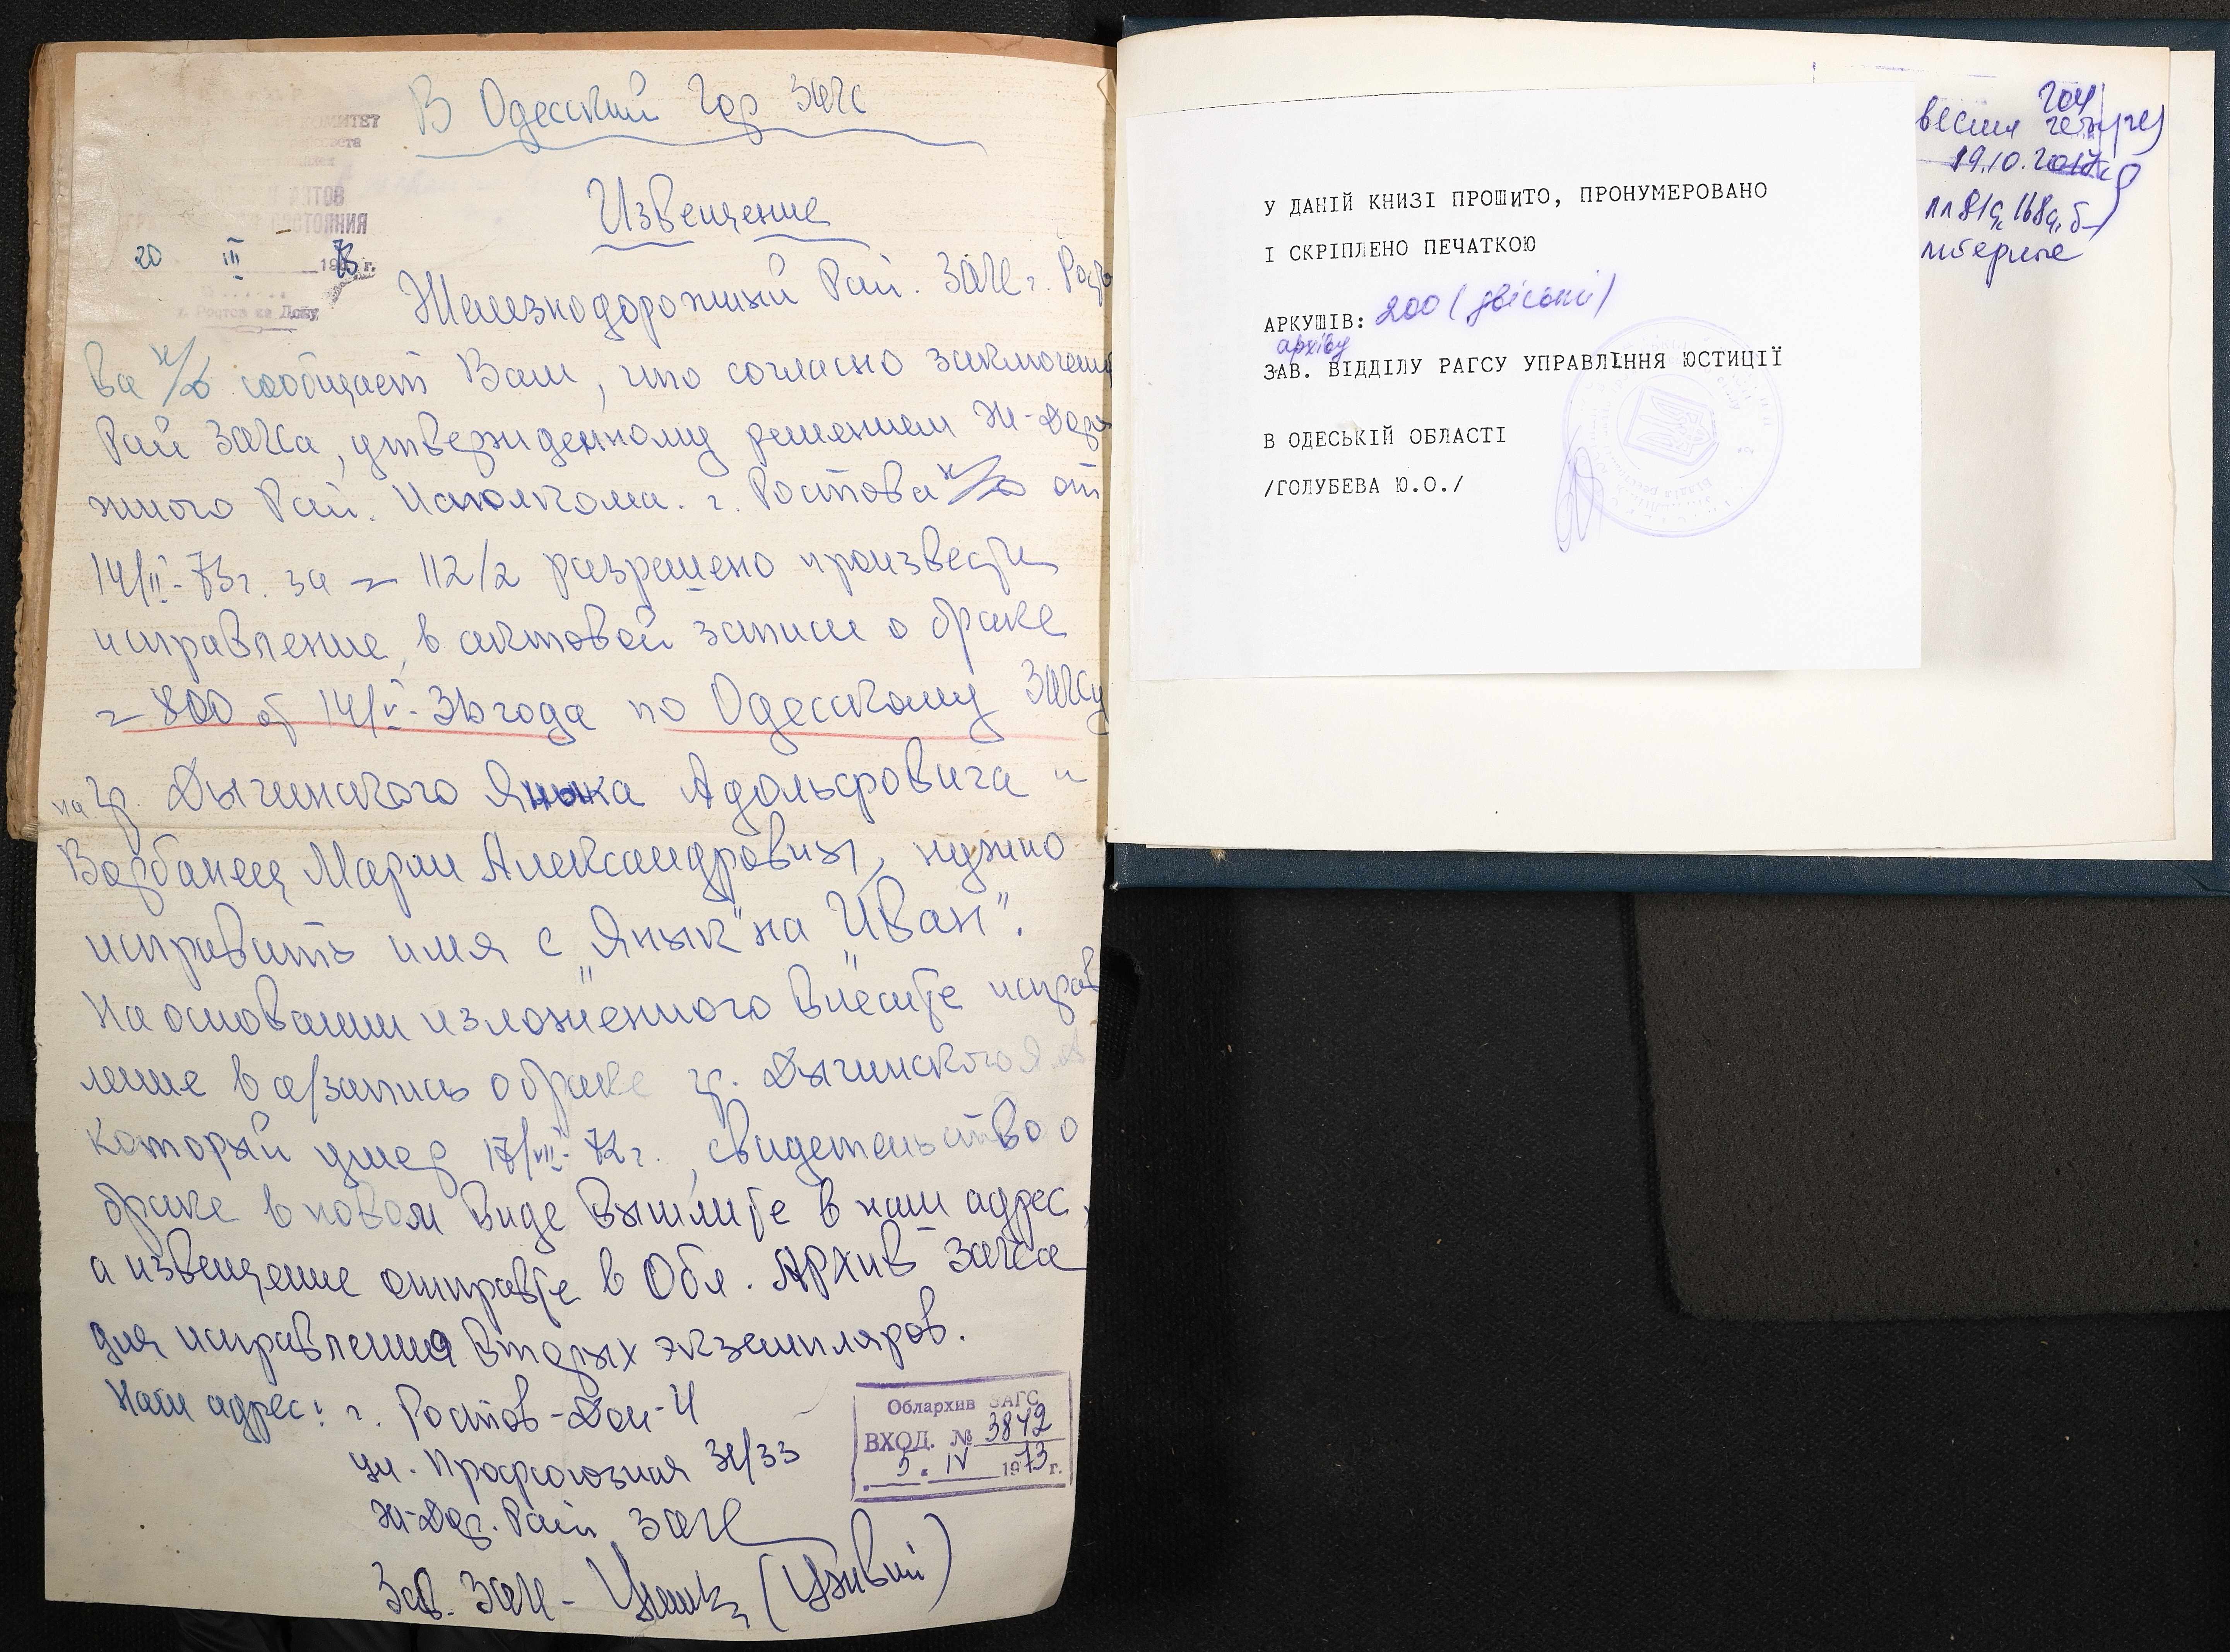 В Одесский Гор ЗАГС
КОМИТЕТ
АКТОВ
СОСТОЯНИЯ
20 III 1973 г.
г. Ростов на Дону
Извещение
Железнодорожный Рай. ЗАГС г. Росто
ва н/Д сообщает Вам, что согласно заключения
Рай ЗАГСа, утвержденному решением Ж-Доро
жного Рай. Исполкома. г. Ростова н/Д от
14/II-73г. за № 112/2 разрешено произвести
исправление, в актовой записи о браке
№ 800 от 14/V-36 года по Одесскому ЗАГСу
на гр. Дычинского Яныка Адольфовича и
Вербанец Марии Александровны, нужно
исправить имя с „Янык" на „Иван".
На основании изложенного внесите исправ
ление в а/запись о браке гр. Дычинского
который умер 17/VIII-72г., свидетельство о
браке в новом виде вышлите в наш адрес,
а извещение отправте в Обл. Архив ЗАГСа
для исправления вторых экземпляров.
Наш адрес: г. Ростов-Дон-4
ул. Профсоюзная
Ж-Дор. Рай ЗАГС
Зав. ЗАГС -
Облархив ЗАГС
ВХОД. № 3842
5. IV 1973 г.
У ДАНІЙ КНИЗІ ПРОШИТО, ПРОНУМЕРОВАНО
І СКРІПЛЕНО ПЕЧАТКОЮ
АРКУШІВ: 200 (двісті)
архіву
ЗАВ. ВІДДІЛУ РАГСУ УПРАВЛІННЯ ЮСТИЦІЇ
В ОДЕСЬКІЙ ОБЛАСТІ
/ГОЛУБЕВА Ю.О./
204
19.10.2017
лл 81а, 168а, б
литерные